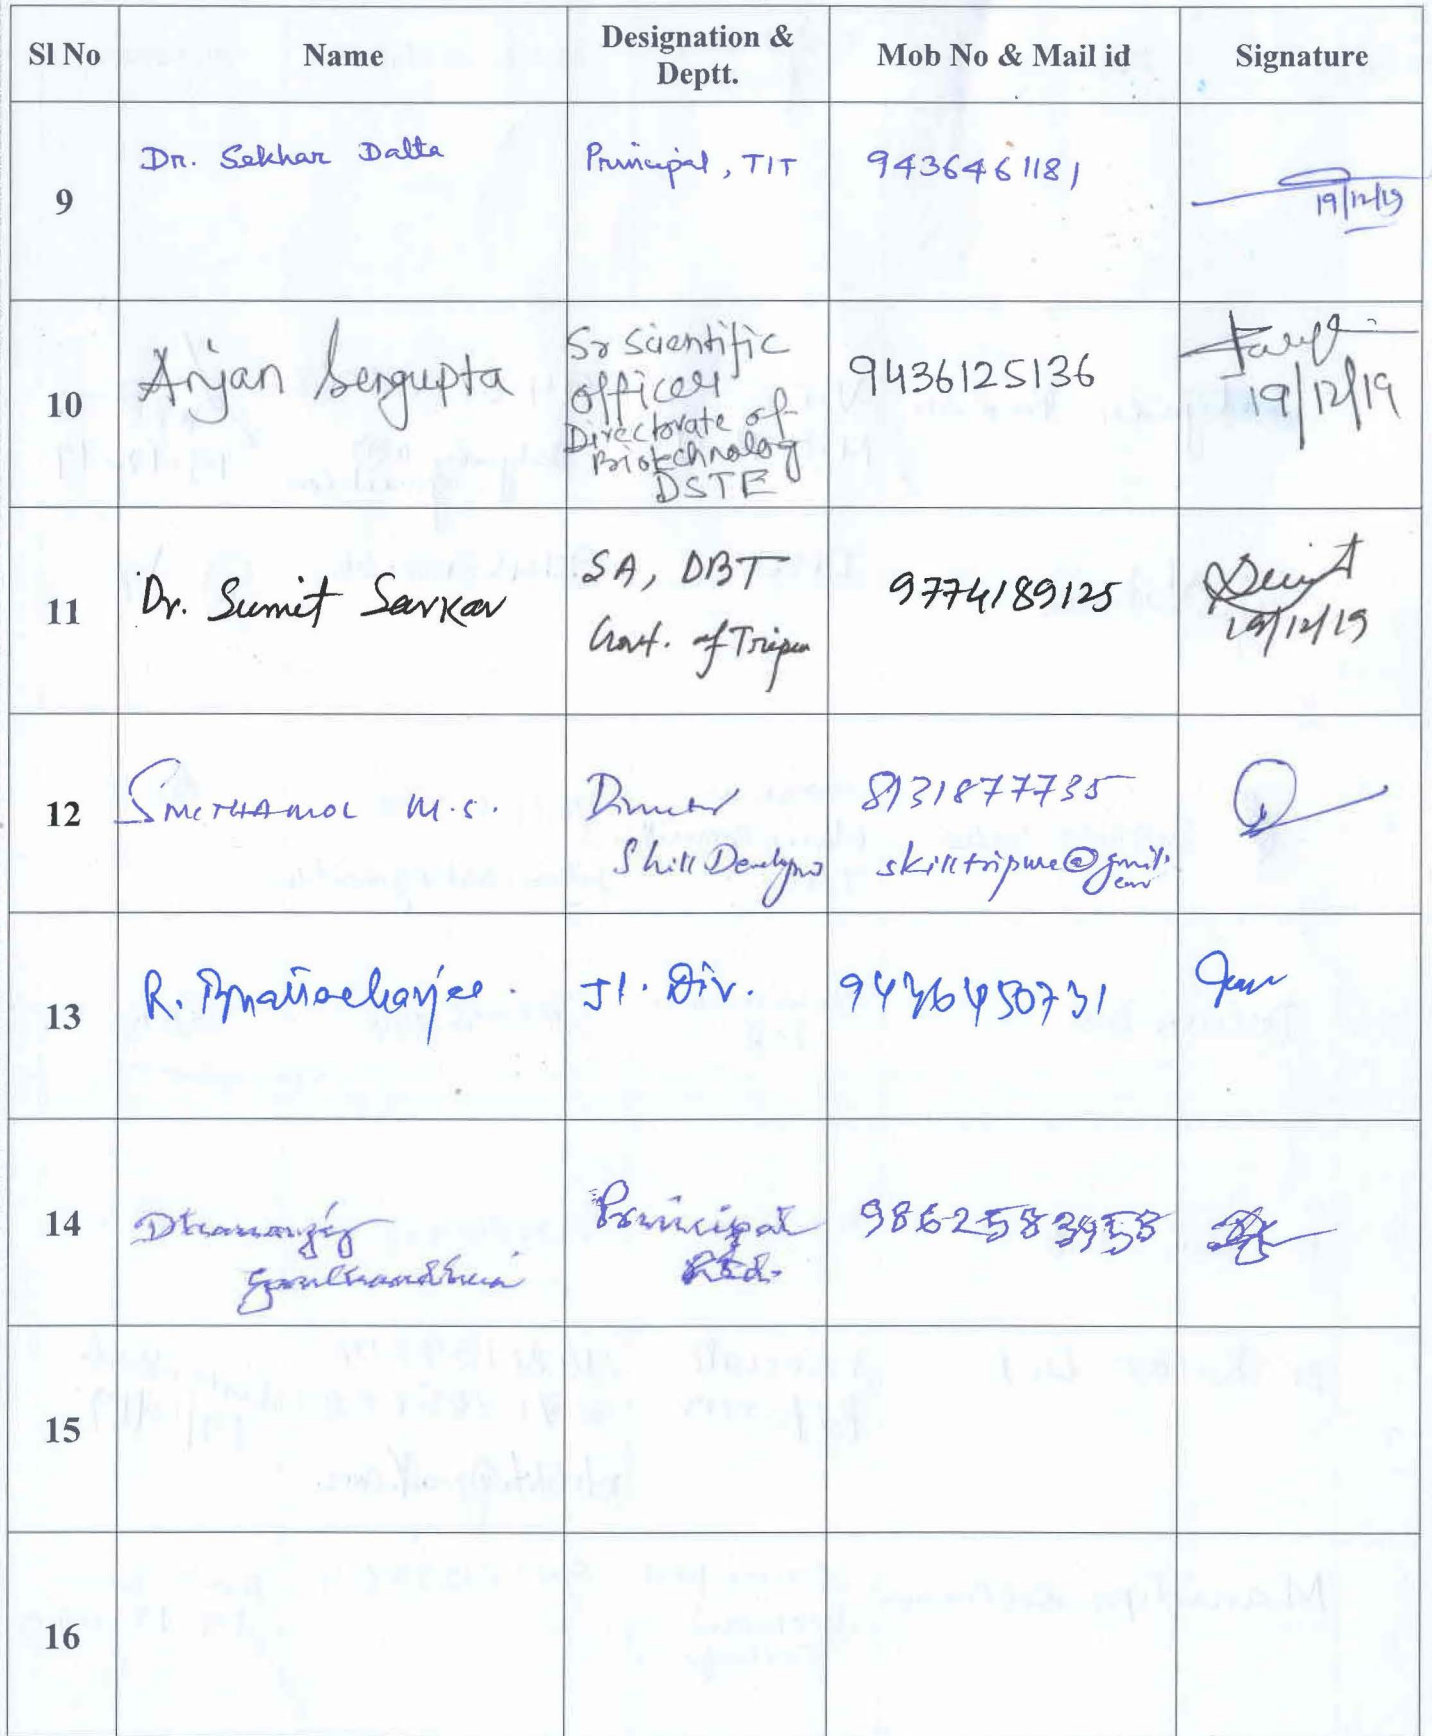 Sl No Name Designation & Deptt. Mob No & Mail id Signature
9 Dr. Sekhar Datta Principal, TIT 9436461181
19/12/19
10 Anjan Sengupta Sr Scientific
Officer
Directorate of
Biotechnology
DSTE
9436125136
19/12/19
11 Dr. Sumit Sarkar SA, DBT
Govt. of Tripura
9774189125
19/12/19
12 SMITHAMOL M.S. Director
Skill Developm
8131877735
skilltripura@gmail.
com
13 R. Bhattacharjee. Jt. Dir. 9436450731
14 Principal
Rtd.
9862583958
15
16